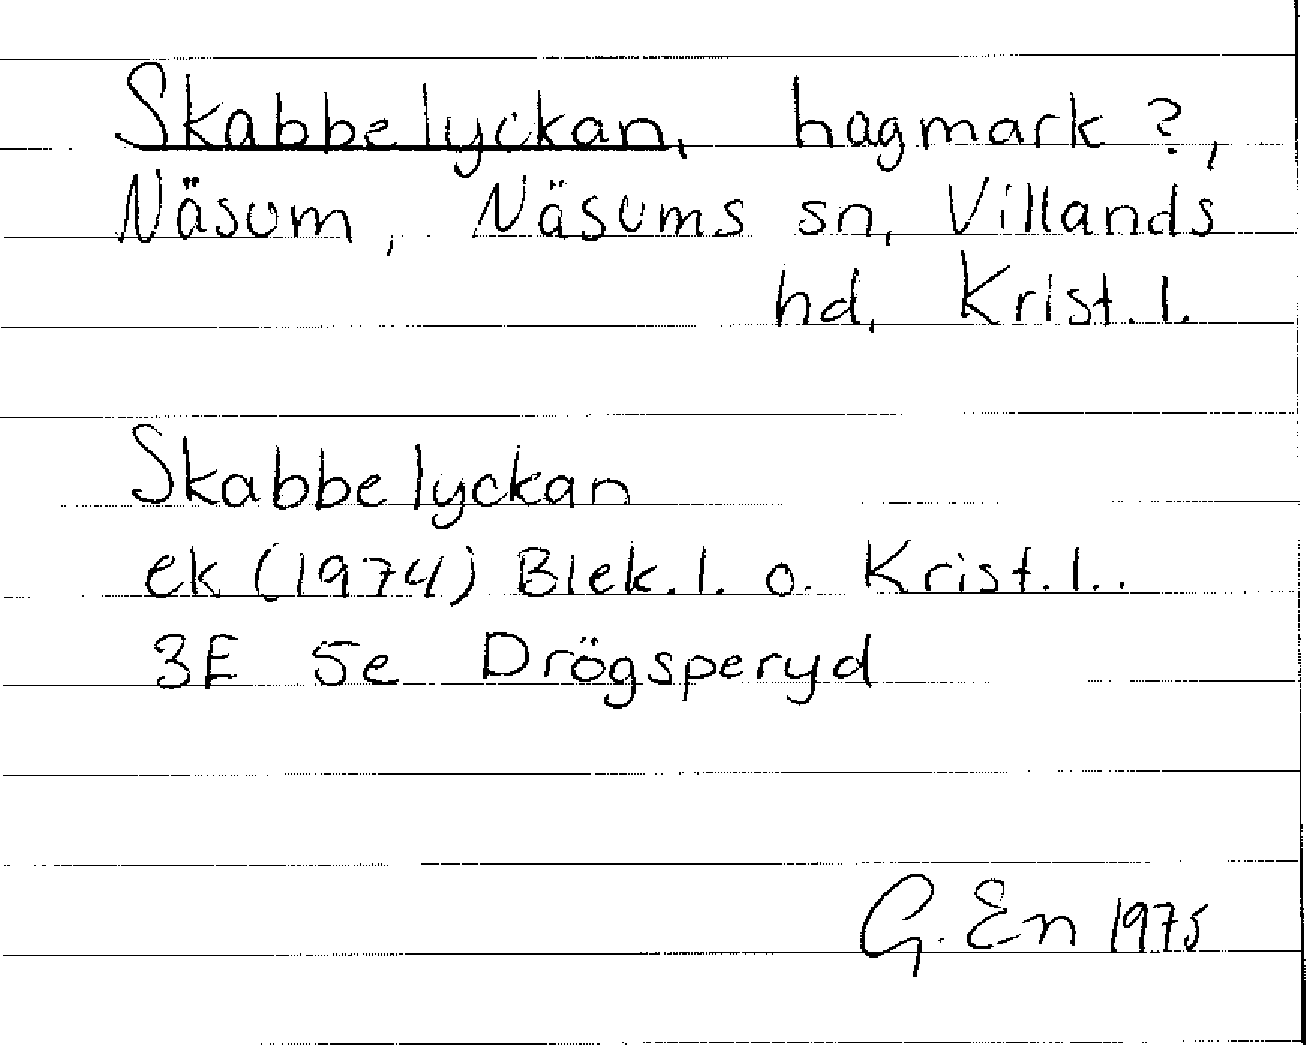 Skabbelyckan, hagmark ?,
Näsum, Näsums sn, Villands
hd, Krist. l.
Skabbelyckan
ek (1974) Blek. l. o. Krist. l..
3E 5e Drögsperyd
G. En 1975